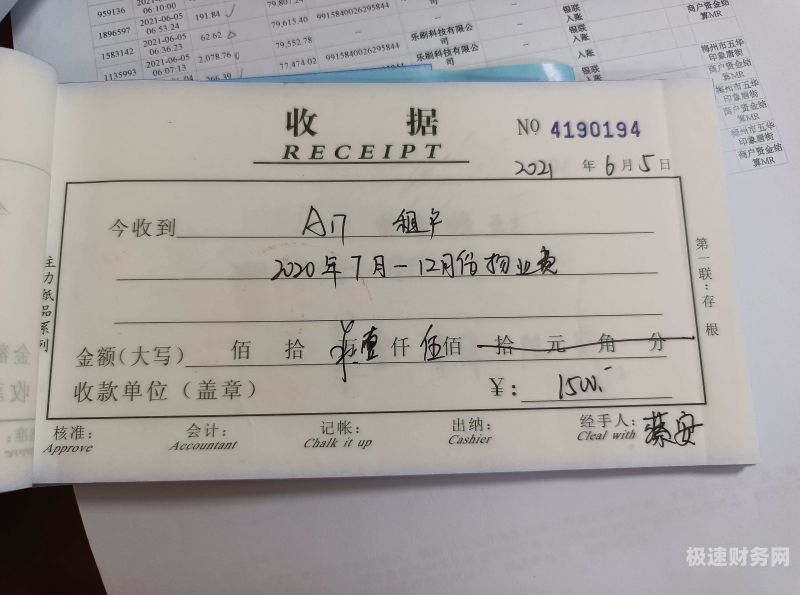 959136 2021-06-05 06:10:00 79,807.24
1896597 2021-06-05 06:53:24 191.84 79,615.40 9915840026295844 --
1583142 2021-06-05 06:36:23 62.62 79,552.78 -- 乐刷科技有限公司 -- 银联入账
1135993 2021-06-05 06:07:13 2,078.76 77,474.02 9915840026295844 乐刷科技有限公司 -- 入账 商户资金结算MR
266.39 银联入账 梅州市五华印象唐街商户资金结算MR
梅州市五华印象唐街商户资金结算MR
梅州市五华印象唐街商户资金结算MR
收 据
RECEIPT
No 4190194
2021 年 6 月 5 日
今收到 A17 租户
2020年7月-12月份物业费
金额(大写) 佰 拾 壹仟 伍佰 拾 元 角 分
收款单位(盖章) ¥: 1500.-
核准: 会计: 记帐: 出纳: 经手人:
Approve Accountant Chalk it up Cashier Cleal with
第一联:存根
主力纸品系列
极速财务网